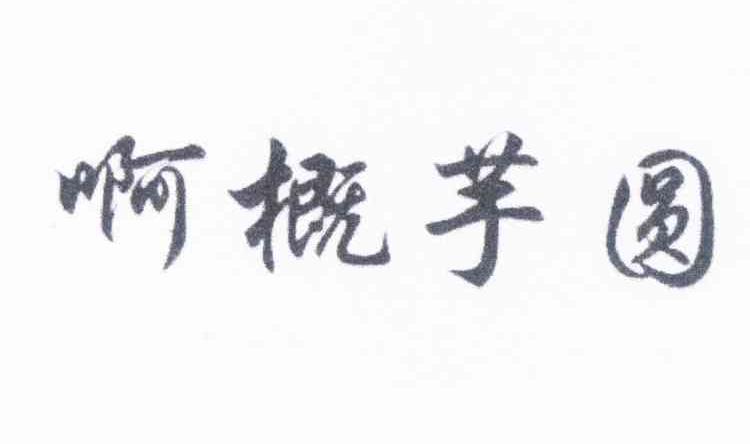 啊概芋圆